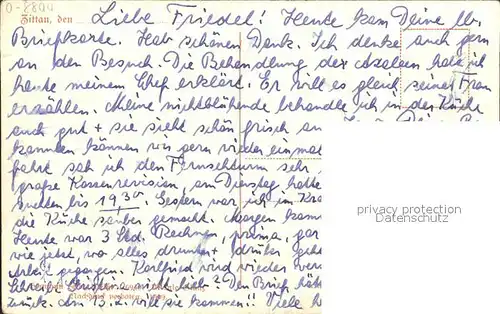 O-8800
Zittau, den Liebe Friedel! Heute kam Deine lb.
Briefkarte. Hab schönen Dank. Ich denke auch gern
an den Besuch. Die Behandlung der Azaleen hab ich
heute meinem Chef erklärt. Er will es gleich seiner Frau
erzählen. Meine nichtblühende behandle ich in der Küche
auch gut + sie sieht schön frisch an
kannten können wir gern wieder einmal
fahrt sah ich den Fernsehturm sehr
große Kassenrevision, am Dienstag hatte
bis 19³⁰. Gestern war ich im
die Küche sauber gemacht. Morgen kann
Heute war 3 Std. Rechnen, prima, gar
wie jetzt, wo alles drunter + drüber geht
Arbeit gegangen. Karlfried wird wieder
Schreibt Christina nicht hab? Den Brief
Nachdruck verboten.
zurück. Am 15.2. will sie kommen!! Viele
privacy protection
Datenschutz